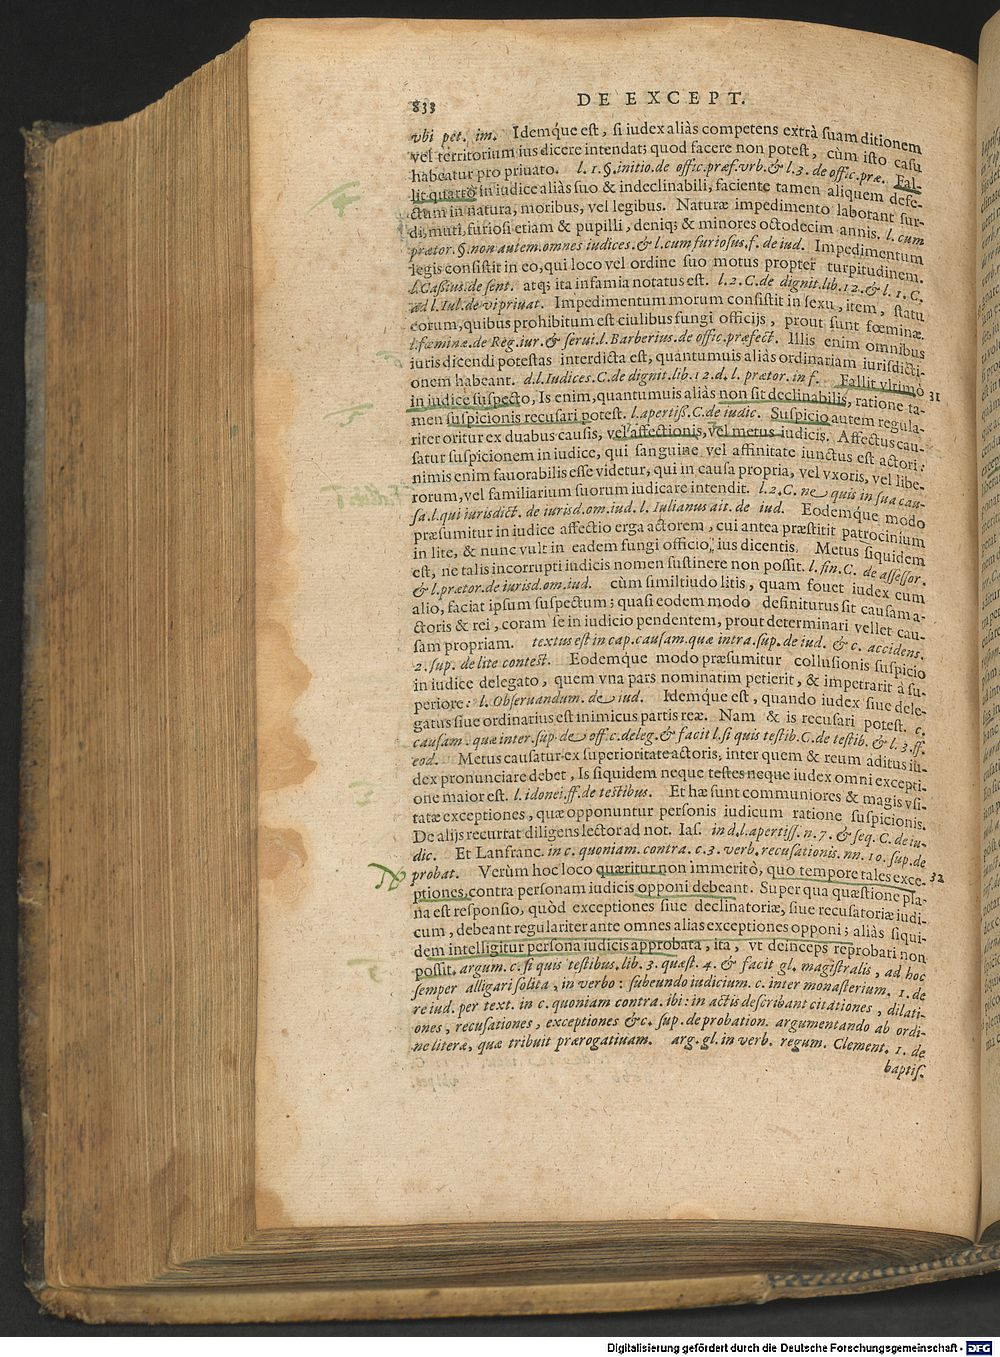 833 DE EXCEPT.
vbi pet. im. Idemq́ue est, si iudex aliàs competens extrà suam ditionem
vel territorium ius dicere intendat; quod facere non potest, cùm isto casu
habeatur pro priuato. l. 1. §. initio. de offic. præf. vrb. & l. 3. de offic. præ. Fal-
lit quartò in iudice aliàs suo & indeclinabili, faciente tamen aliquem defe-
ctum in natura, moribus, vel legibus. Naturæ impedimento laborant sur-
di, muti, furiosi etiam & pupilli, deniq; & minores octodecim annis. l. cum
prætor. §. non autem. omnes iudices. & l. cum furiosus. f. de iud. Impedimentum
legis consistit in eo, qui loco vel ordine suo motus propter turpitudinem.
l. Caßius. de sent. atq; ita infamia notatus est. l. 2. C. de dignit. lib. 12. & l. 1. C.
ad l. Iul. de vi priuat. Impedimentum morum consistit in sexu, item, statu
eorum, quibus prohibitum est ciulibus fungi officijs, prout sunt fœminæ.
l. fœminæ. de Reg. iur. & serui. l. Barberius. de offic. præfect. Illis enim omnibus
iuris dicendi potestas interdicta est, quantumuis aliàs ordinariam iurisdicti-
onem habeant. d. l. Iudices. C. de dignit. lib. 12. d. l. prætor. in f. Fallit vltimò 31
in iudice suspecto, Is enim, quantumuis aliàs non sit declinabilis, ratione ta-
men suspicionis recusari potest. l. apertiß. C. de iudic. Suspicio autem regula-
riter oritur ex duabus causis, vel affectionis, vel metus iudicis. Affectus cau-
satur suspicionem in iudice, qui sanguine vel affinitate iunctus est actori:
nimis enim fauorabilis esse videtur, qui in causa propria, vel vxoris, vel libe-
rorum, vel familiarium suorum iudicare intendit. l. 2. C. ne quis in sua cau-
sa. l. qui iurisdict. de iurisd. om. iud. l. Iulianus ait. de iud. Eodemq́ue modo
præsumitur in iudice affectio erga actorem, cui antea præstitit patrocinium
in lite, & nunc vult in eadem fungi officio, ius dicentis. Metus siquidem
est, ne talis incorrupti iudicis nomen sustinere non possit. l. fin. C. de assessor.
& l. prætor. de iurisd. om. iud. cùm similtiudo litis, quam fouet iudex cum
alio, faciat ipsum suspectum; quasi eodem modo definiturus sit causam a-
ctoris & rei, coram se in iudicio pendentem, prout determinari vellet cau-
sam propriam. textus est in cap. causam. quæ intra. sup. de iud. & c. accidens.
2. sup. de lite contest. Eodemq́ue modo præsumitur collusionis suspicio
in iudice delegato, quem vna pars nominatim petierit, & impetrarit à su-
periore: l. Obseruandum. de iud. Idemq́ue est, quando iudex siue dele-
gatus siue ordinatius est inimicus partis reæ. Nam & is recusari potest. c.
causam. quæ inter. sup de off. c. deleg. & facit l. si quis testib. C. de testib. & l. 3. ff.
eod. Metus causatur ex superioritate actoris; inter quem & reum aditus iu-
dex pronunciare debet, Is siquidem neque testes neque iudex omni excepti-
one maior est. l. idonei. ff. de testibus. Et hæ sunt communiores & magis vsi-
tatæ exceptiones, quæ opponuntur personis iudicum ratione suspicionis.
De alijs recurrat diligens lector ad not. Ias. in d. l. apertiss. n. 7. & seq. C. de iu-
dic. Et Lanfranc. in c. quoniam. contra. c. 3. verb. recusationis. nn. 10. sup. de
probat. Verùm hoc loco quæritur non immeritò, quo tempore tales exce- 32
ptiones, contra personam iudicis opponi debeant. Super qua quæstione pla-
na est responsio, quòd exceptiones siue declinatoriæ, siue recusatoriæ iudi-
cum, debeant regulariter ante omnes alias exceptiones opponi; aliàs siqui-
dem intelligitur persona iudicis approbata, ita, vt deinceps reprobati non
possit. argum. c. si quis testibus. lib. 3. quæst. 4. & facit gl. magistralis, ad hoc
semper alligari solita, in verbo: subeundo iudicium. c. inter monasterium. 1. de
re iud. per text. in c. quoniam contra. ibi: in actis describant citationes, dilati-
ones, recusationes, exceptiones &c. sup. de probation. argumentando ab ordi-
ne literæ, quæ tribuit prærogatiuam. arg. gl. in verb. regum. Clement. 1. de
baptis.
Digitalisierung gefördert durch die Deutsche Forschungsgemeinschaft - DFG